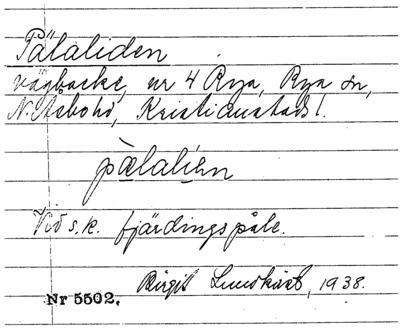 Pålaliden
vägbacke, nr 4 Rya, Rya sn,
N. Åsbo hd, Kristianstads l.
pålalíen
Vid s.k. fjärdingspåle.
Birgit Lundkvist, 1938.
Nr 5502.